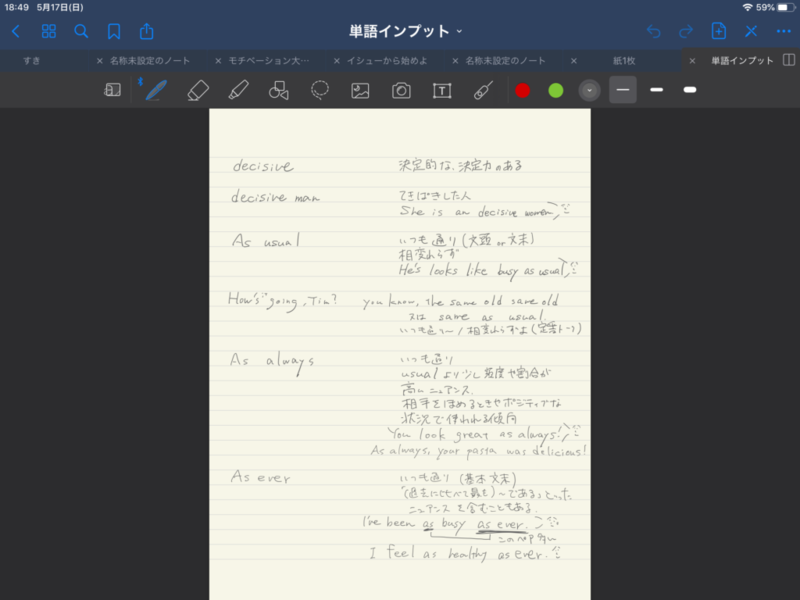 18:49 5月17日(日)
59%
単語インプット
すき
名称未設定のノート
モチベーション大…
イシューから始めよ
名称未設定のノート
紙1枚
単語インプット
decisive 決定的な、決定力のある
decisive man てきぱきした人
She is an decisive women
As usual いつも通り(文頭 or 文末)
相変わらず
He's looks like busy as usual
How's going, Tim? you know, the same old same old
又は same as usual.
いつも通り〜/相変わらずよ(定番トーク)
As always いつも通り
usual より少し頻度や割合が
高いニュアンス.
相手をほめるときやポジティブな
状況で使われる傾向
You look great as always!
As always, your pasta was delicious!
As ever いつも通り (基本文末)
「(過去にくらべて最も)〜である」といった
ニュアンスを含むこともある.
I've been as busy as ever.
このペア多い
I feel as healthy as ever.